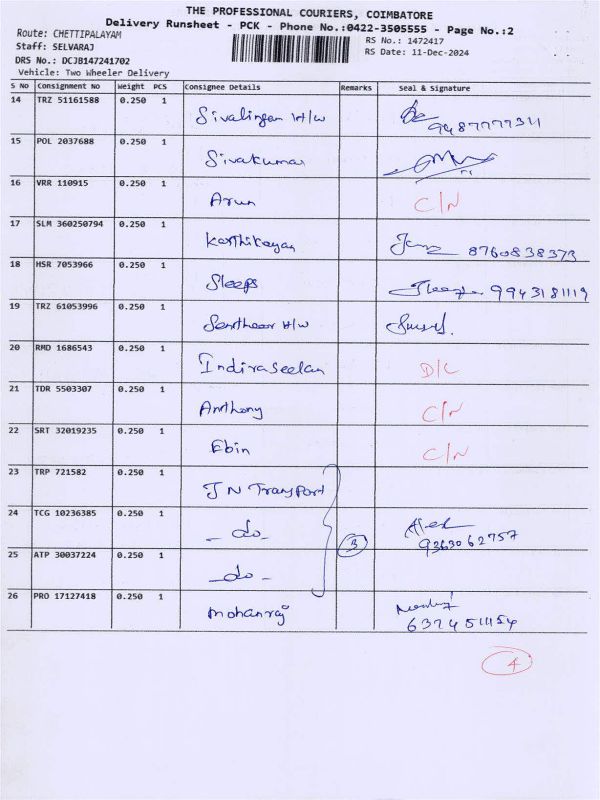 THE PROFESSIONAL COURIERS, COIMBATORE
Delivery Runsheet - PCK - Phone No.:0422-3505555 - Page No.:2
Route: CHETTIPALAYAM
RS No.: 1472417
Staff: SELVARAJ
RS Date: 11-Dec-2024
DRS No.: DCJB147241702
Vehicle: Two Wheeler Delivery
S No Consignment No Weight PCS Consignee Details Remarks Seal & Signature
14 TRZ 51161588 0.250 1 Sivalingam H/W 9487777311
15 POL 2037688 0.250 1 Sivakumar
16 VRR 110915 0.250 1 Arun C/N
17 SLM 360250794 0.250 1 Karthikayan 8760838373
18 HSR 7053966 0.250 1 Sleeps 9943181119
19 TRZ 61053996 0.250 1 H/W
20 RMD 1686543 0.250 1 Indiraseelan D/C
21 TDR 5503307 0.250 1 Anthony C/N
22 SRT 32019235 0.250 1 Ebin C/N
23 TRP 721582 0.250 1 JN Transport
24 TCG 10236385 0.250 1 - do - 3 9363062757
25 ATP 30037224 0.250 1 - do -
26 PRO 17127418 0.250 1 mohanraj 6374511154
4